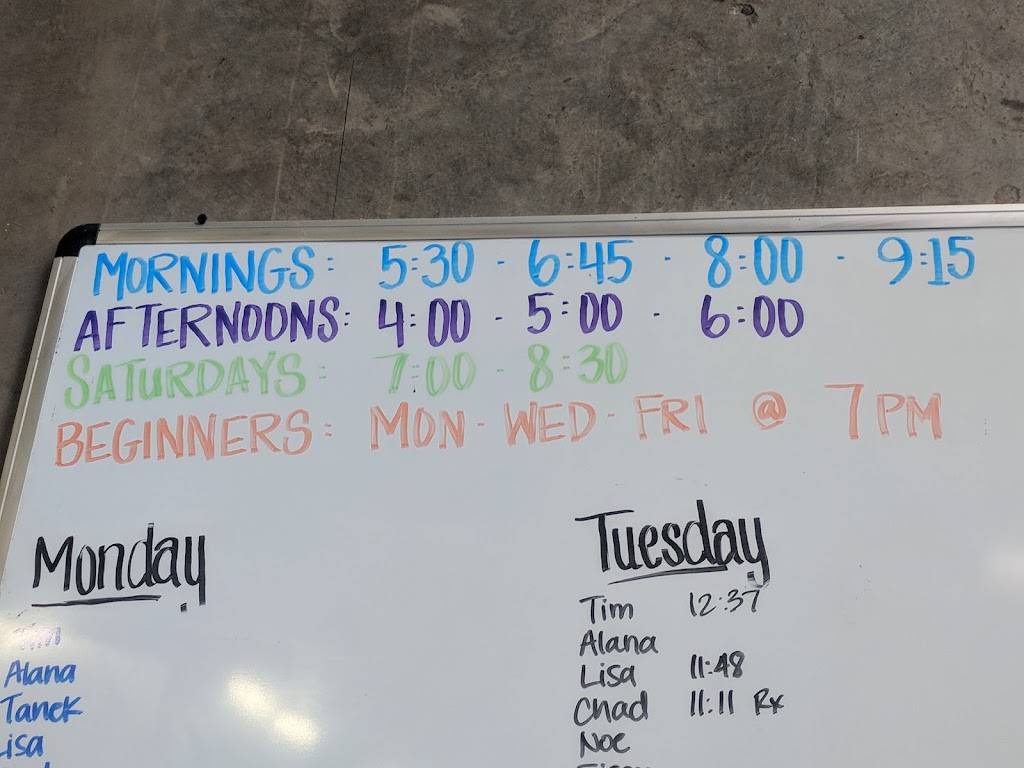 MORNINGS: 5:30 - 6:45 - 8:00 - 9:15
AFTERNOONS: 4:00 - 5:00 - 6:00
SATURDAYS: 7:00 - 8:30
BEGINNERS: MON - WED - FRI @ 7PM
Monday
Tim
Alana
Tanek
Lisa
Tuesday
Tim 12:37
Alana
Lisa 11:48
Chad 11:11 Rx
Noe